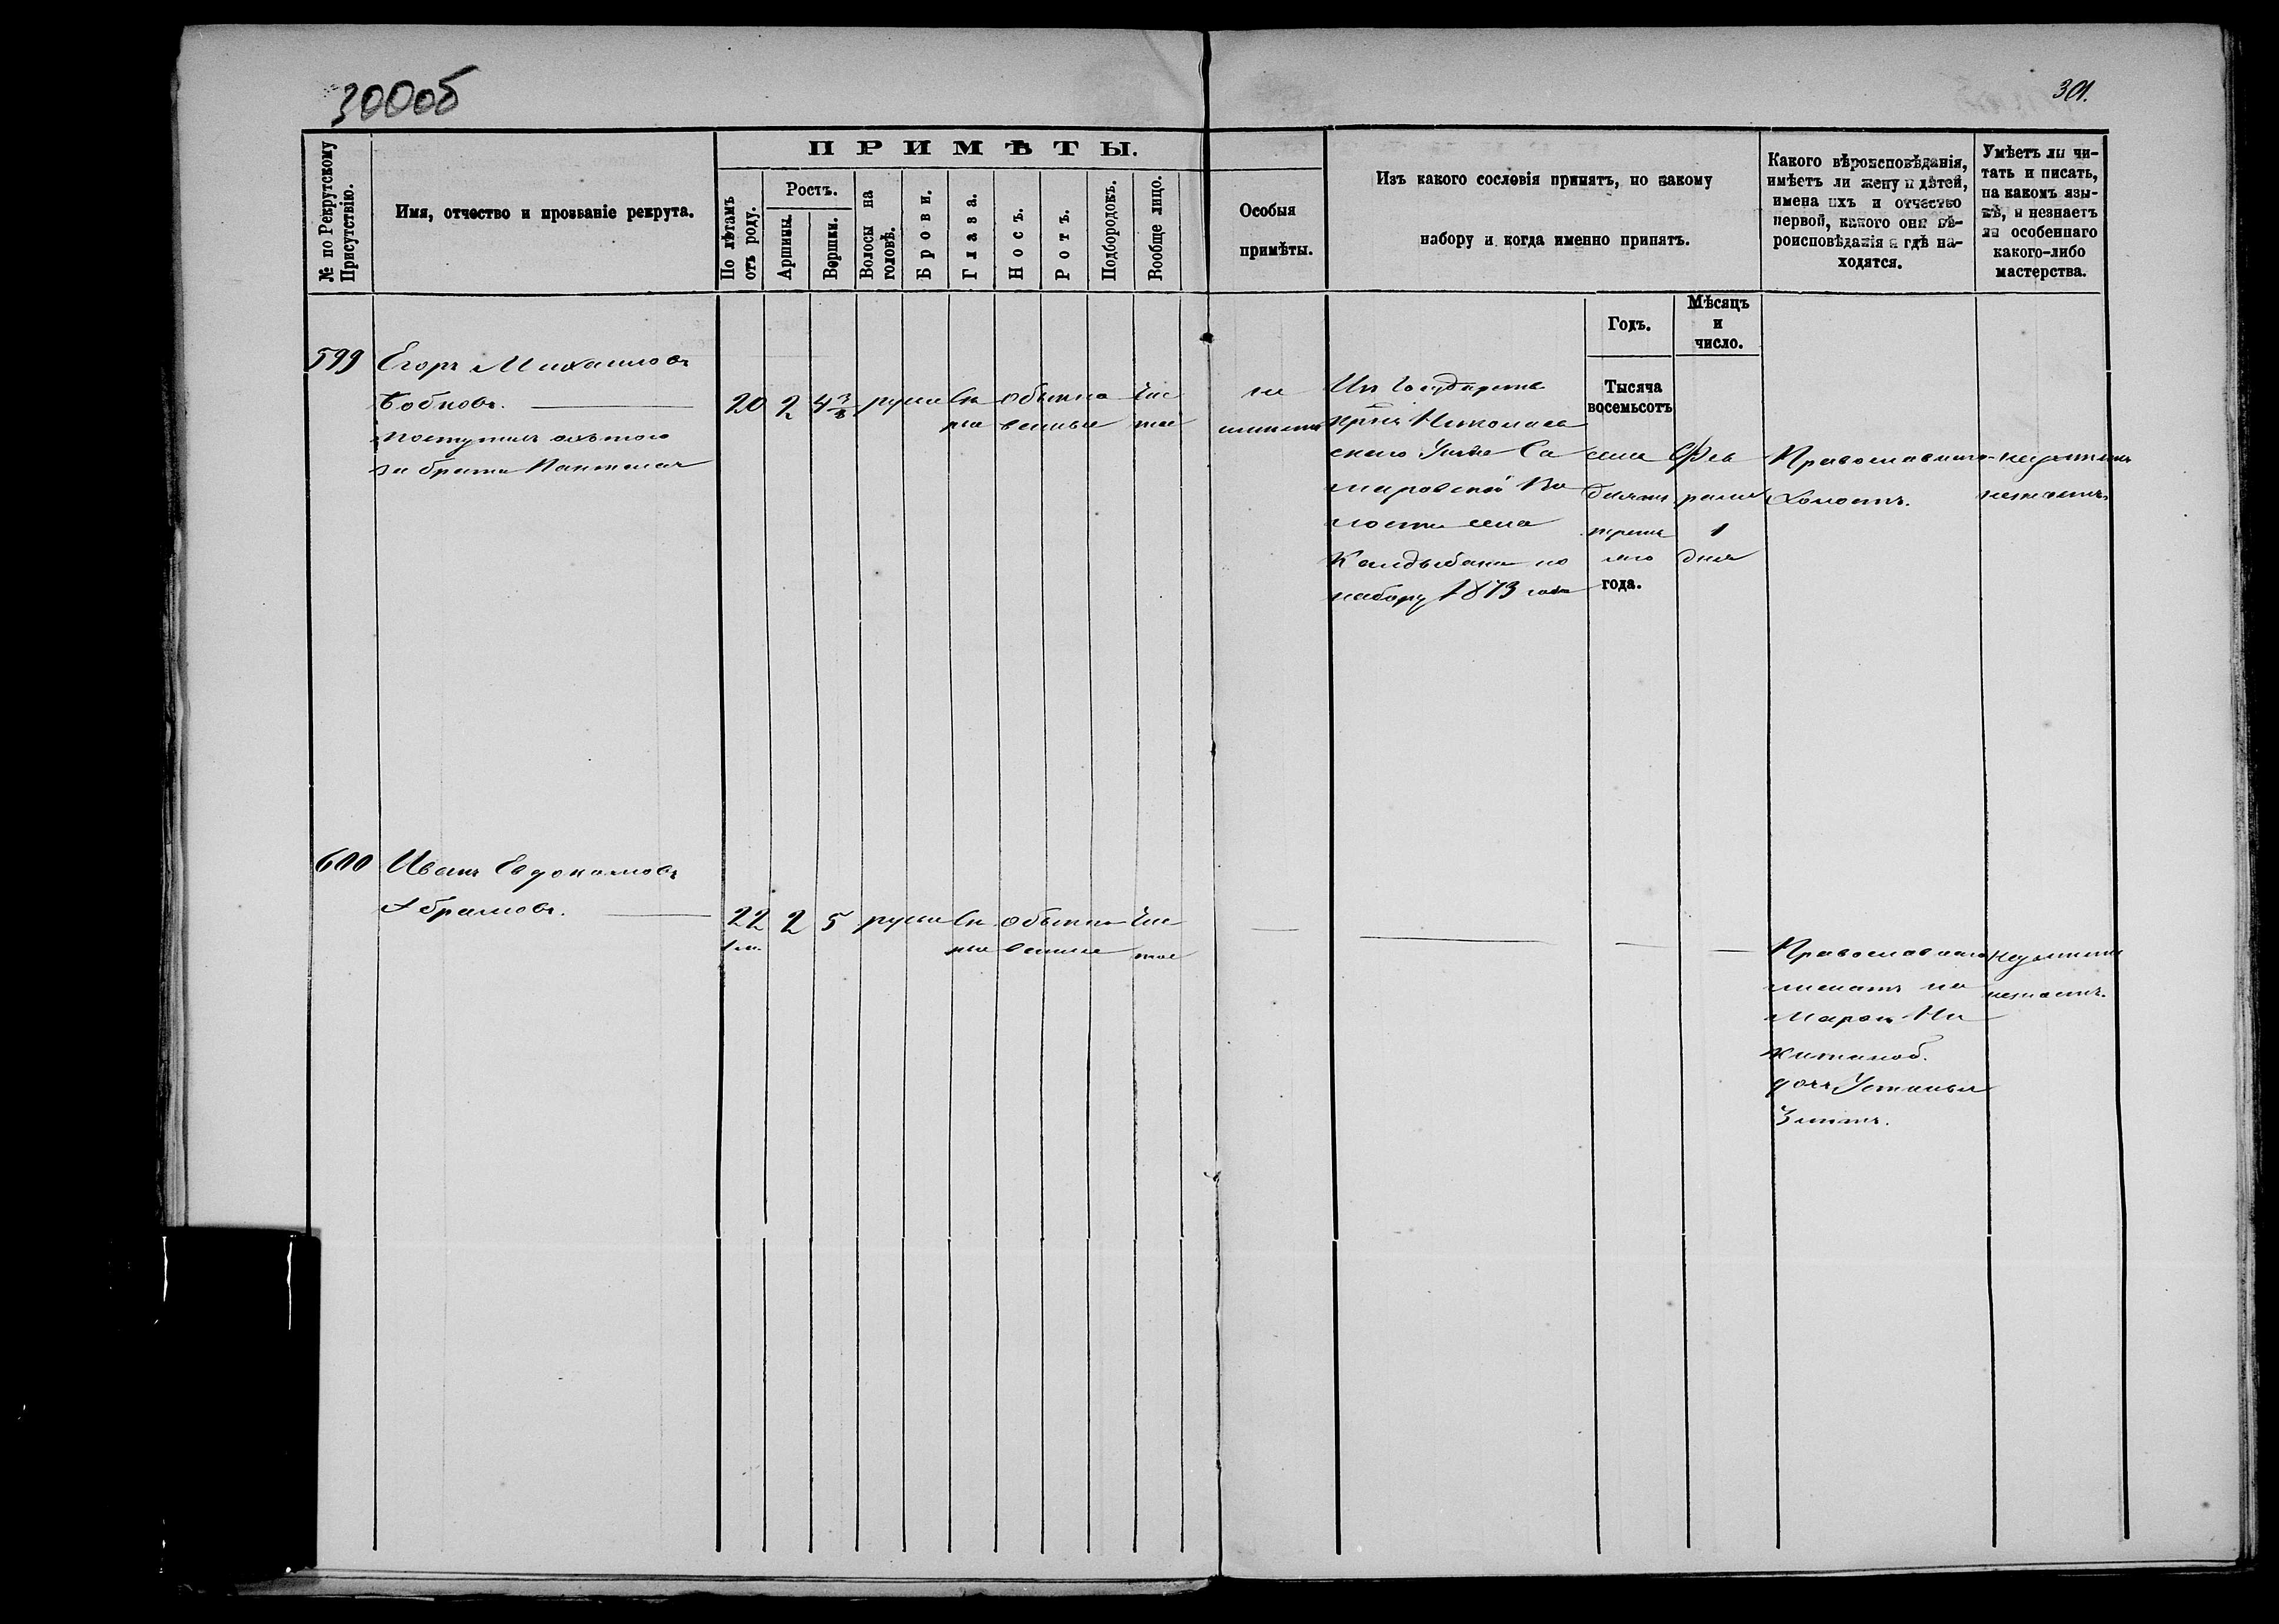 300об
301.
№ по Рекрутскому Присутствію.
Имя, отчество и прозваніе рекрута.
ПРИМѢТЫ.
По лѣтамъ отъ роду.
Ростъ.
Аршины.
Вершки.
Волосы на головѣ.
Брови.
Глаза.
Носъ.
Ротъ.
Подбородокъ.
Вообще лицо.
Особыя
примѣты.
Изъ какого сословія принятъ, по какому
набору и когда именно принятъ.
Какого вѣроисповѣданія,
имѣетъ ли жену и дѣтей,
имена ихъ и отчество
первой, какого они вѣ-
роисповѣданія и гдѣ на-
ходятся.
Умѣетъ ли чи-
тать и писать,
на какомъ язы-
кѣ, и незнаетъ
ли особеннаго
какого-либо
мастерства.
Годъ.
Мѣсяцъ
и
число.
Тысяча
восемьсотъ
599
Егоръ Михаиловъ
Бобковъ.
поступилъ охотою
за брата
20 2 4 3/8 русые Сѣ обыкно Чис
рые венные тое
не
имѣетъ
Изъ Государств
крст. Николаев
скаго Уѣзда Са
маровской Во
лости села
Кандыбина по
набору 1873 года
семь
десятъ
треть
яго
года.
Фев
раля
1
дня
Православнаго
Холостъ.
неумѣетъ
незнаетъ
600
Иванъ Евдокимовъ
Абрамовъ.
22 2 5 русые Сѣ обыкно Чис
1 м. рые венные тое
Православнаго
женатъ на
Марѳѣ Ни
китиной.
дочь Устинья
3 лѣтъ.
неумѣетъ
незнаетъ.